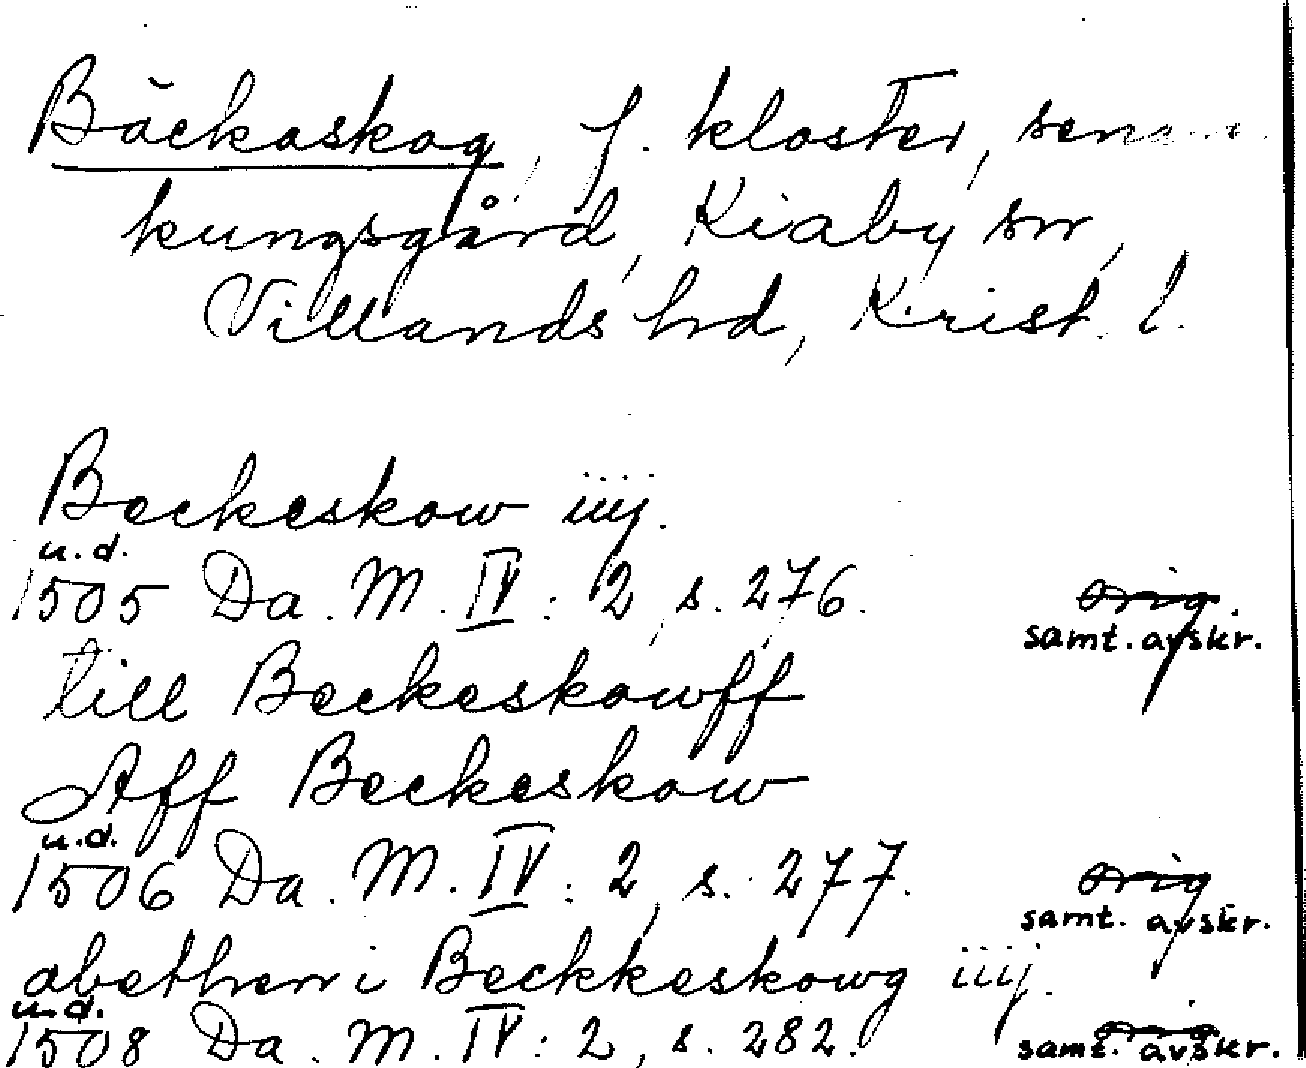 Bäckaskog, f. kloster,
kungsgård, Kiaby sn,
Villands hd, Krist. l.
Beckeskow iiij.
u.d.
1505 Da. M. IV: 2, s. 276. orig.
samt. avskr.
till Beckeskowff
Aff Beckeskow
u.d.
1506 Da. M. IV: 2, s. 277. orig
samt. avskr.
abethen i Beckkeskowg iiij.
u.d.
1508 Da. M. IV: 2, s. 282. orig
samt. avskr.